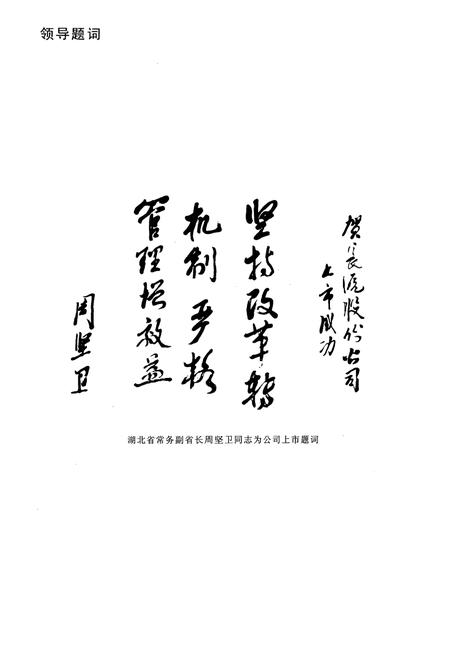 领导题词
贺长源股份公司
上市成功
坚持改革转
机制严格
管理增效益
周坚卫
湖北省常务副省长周坚卫同志为公司上市题词